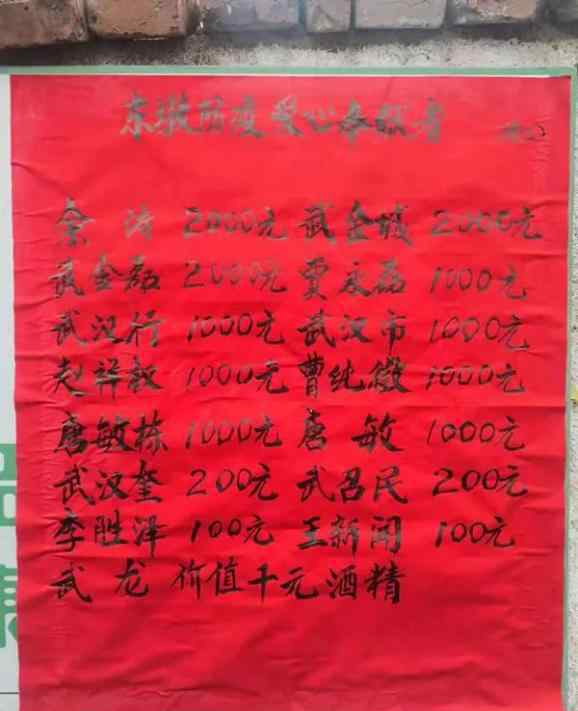 东墩防疫爱心奉献者
余涛 2000元 武金城 2000元
武金磊 2000元 贾永磊 1000元
武汉行 1000元 武汉市 1000元
赵祥敦 1000元 曹纯徽 1000元
唐敏栋 1000元 唐敏 1000元
武汉奎 200元 武召民 200元
李胜泽 100元 王新闻 100元
武龙 价值千元酒精